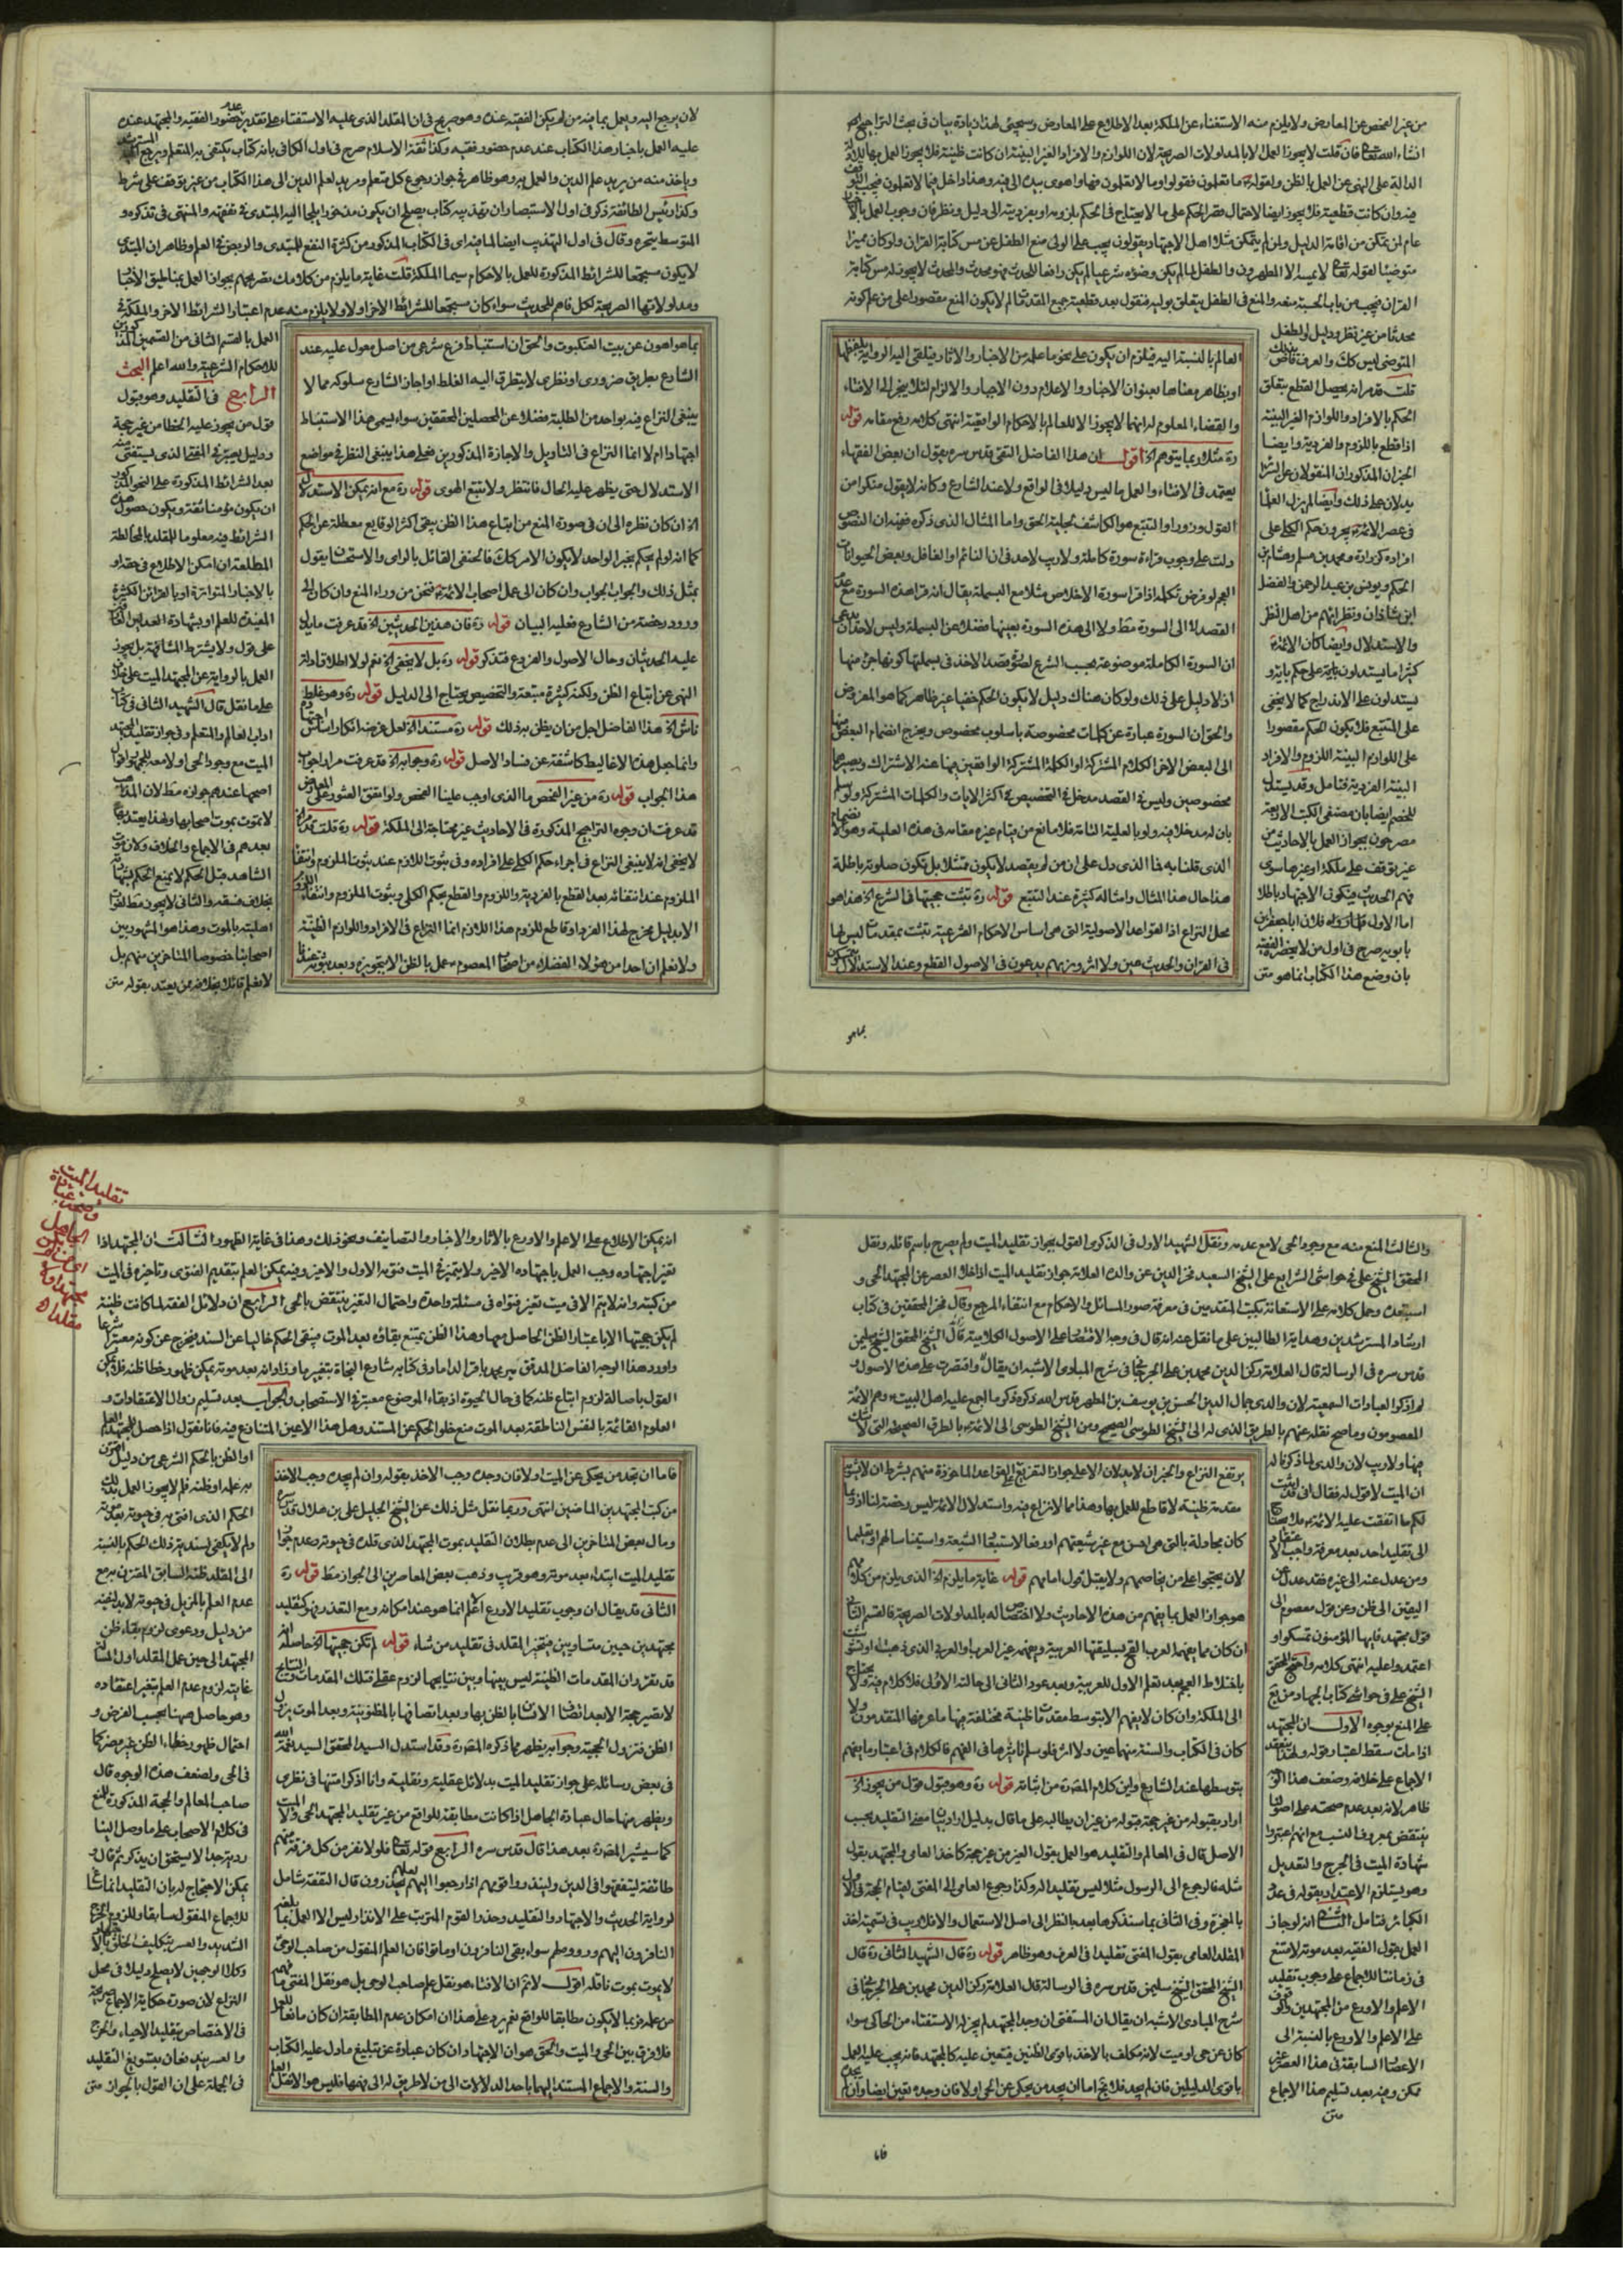 من غير الفحص عن المعارض ولا يلزم منه الاستغناء عن الملكة بعد الاطلاع على المعارض وسيجئ لهذا زيادة بيان في بحث التراجيح
انشاء الله تعالى فان قلت لا يجوز العمل الا بالمدلولات الصريحة لان اللوازم والافراد الغير البينة ان كانت ظنية فلا يجوز العمل بها
الدالة على النهى عن العمل بالظن ولقوله ما تعلمون فقولوا وما لا تعلمون فها واهوى بيده الى فيه وهذا داخل فيما لا تعلمون
فيه وان كانت قطعية فلا يجوز ايضا لاحتمال قصر الحكم على ما لا يحتاج في الحكم بلزومه او بفرديته الى دليل ونظر فان وجوب العمل
عام لمن تمكن من اقامة الدليل ولمن لم يتمكن مثلا اهل الاجتهاد يقولون يجب على الولى منع الطفل عن مس كتابة القران ولو كان مميزا
متوضئا لقوله تعالى لا يمسه الا المطهرون والطفل لما لم يكن وضوءه شرعيا لم يكن رافعا للحدث فهو محدث والمحدث لا يجوز له مس كتابة
القران فيجب من باب الحسبة منعه والمنع في الطفل يتعلق بوليه فنقول بعد قطعية جميع المقدمات لم لا يكون المنع مقصورا على من علم كونه
محدثا من غير نظر ودليل والطفل
المتوضى ليس كك والعرف قاض
قلت قد مر انه يحصل القطع بتعلق
الحكم بالافراد واللوازم الغير البينة
اذا قطع باللزوم والفردية وايضا
الخبران المذكوران المنقولان عن
يدلان على ذلك وايضا لم يزل العلما
في عصر الائمة يجرون حكم الكلي على
افراده كزرارة ومحمد بن مسلم وهشام بن
الحكم ويونس بن عبد الرحمن والفضل
ابن شاذان ونظرائهم من اهل النظر
والاستدلال وايضا كان الائمة
كثيرا ما يستدلون باية على حكم باية و
يستدلون على الاندراج كما لا يخفى
على المتتبع فلا يكون الحكم مقصورا
على اللوازم البينة اللزوم والافراد
البينة الفردية فتامل وقد يستدل
للخصم ايضا بان مصنفى الكتب الاربعة
مصرحون بجواز العمل بالاحاديث من
غير توقف على ملكة او غيرها سوى
فهم الحديث فيكون الاجتهاد باطلا
اما الاول فلان ابا جعفر بن
بابويه صرح في اول من لا يحضره الفقيه
بان وضع هذا الكتاب انما هو متن
العالم بالنسبة اليه فيلزم ان يكون على نحو ما علم من الاخبار والاثار ويلقى اليه الرواية
او بظاهر معناها بعنوان الاخبار والاعلام دون الاجبار والالزام لئلا ينجر الى الافتاء
والقضاء المعلوم انهما لا يجوز الا للعالم بالاحكام الواقعية انتهى كلامه رفع مقامه قوله
ره مثلا ربما يتوهم اه اقول ان هذا الفاضل التقى قدس سره يقول ان بعض الفقهاء
يعتمد في الافتاء والعمل ما ليس دليلا في الواقع ولا عند الشارع وكانه لا يقول منكرا من
القول وزورا والتتبع هو الكاشف لجلية الحق واما المثال الذي ذكره ففيه ان النصوص
دلت على وجوب قراءة سورة كاملة ولا ريب لاحد في ان النائم او الغافل وبعض الحيوانات
العجم لو فرض تكلمه اذا قرا سورة الاخلاص مثلا مع البسملة يقال انه قرا هذه السورة مع
القصد لا الى السورة مط ولا الى هذه السورة بعينها فضلا عن البسملة وليس لاحد ان
ان السورة الكاملة موضوعة بحسب الشرع لقصد الاخذ في بسملتها كونها جزء منها
اذ لا دليل على ذلك ولو كان هناك دليل لا يكون الحكم خفيا غير ظاهر كما هو المفروض
والحق ان السورة عبارة عن كلمات مخصوصة باسلوب مخصوص ويخرج انضمام البعض
الى البعض الاخر الكلام المشترك او الكلمة المشتركة الواقعين فيها عن الاشتراك
مخصوصين وليس في القصد مدخل في التخصيص في اكثر الايات والكلمات المشتركة ولو سلم
بان له مدخلا فيه ولو بالعلية التامة فلا مانع من قيام غيره مقامه في هذه العلية وهو
الذي قلنا به فما الذي دل على ان من لم يقصد لا يكون ممتثلا بل تكون صلوته باطلة
هذا حال هذا المثال وامثاله كثيرة عند التتبع قوله ره تثبت حجيتها في الشرع اه هذا هو
محل النزاع اذ القواعد الاصولية التي هي اساس الاحكام الشرعية تثبت بمقدمات ليس لها
في القران والحديث عين ولا اثر ونراهم يدعون في الاصول القطع وعند الاستدلال
بما هو
لان يرجع اليه ويعمل بما فيه من لم يكن الفقيه عنده وهو صريح في ان المقلد الذي عليه الاستفتاء على تقدير حضور الفقيه والمجتهد عنده
عليه العمل باخبار هذا الكتاب عند عدم حضور فقيه وكذا ثقة الاسلام صرح في اول الكافي بانه كتاب يكتفى به المتعلم ويرجع اليه
وياخذ منه من يريد علم الدين والعمل به وهو ظاهر في جواز رجوع كل متعلم ومريد لعلم الدين الى هذا الكتاب من غير توقف على شرط
وكذا رئيس الطائفة ذكر في اول الاستبصار ان تهذيبه كتاب يصلح ان يكون مذخورا يلجا اليه المبتدى في تفقهه والمنتهى في تذكره و
المتوسط في تبحره وقال في اول التهذيب ايضا لما فيه اى في الكتاب المذكور من كثرة النفع للمبتدى والريض في العلم وظاهر ان المبتدى
لا يكون مستجمعا للشرائط المذكورة للعمل بالاحكام سيما الملكة قلت غاية ما يلزم من كلامك تصريحهم بجواز العمل بمناطيق الاخبار
ومدلولاتها الصريحة لكل فاهم للحديث سواء كان مستجمعا للشرائط الاخر اولا ولا يلزم منه عدم اعتبار الشرائط الاخر والملكة في
العمل بالقسم الثاني من القسمين
للاحكام الشرعية والله اعلم البحث
الرابع في التقليد وهو قبول
قول من يجوز عليه الخطا من غير حجة
ودليل يعتبر في المفتي الذي يستفتى
بعد الشرائط المذكورة على النحو
ان يكون مؤمنا ثقة ويكون حصول
الشرائط فيه معلوما للمقلد بالمخالطة
المطلعة ان امكن الاطلاع في حقه او
بالاخبار المتواترة او بالقرائن الكثيرة
المفيدة للعلم او بشهادة العدلين
على قول ولا يشترط المشافهة بل يجوز
العمل بالرواية عن المجتهد الميت على خلاف
على ما نقل قال الشهيد الثاني في كتاب
اداب العالم والمتعلم وفي جواز تقليد المجتهد
الميت مع وجود الحي او لا معه للجمهور اقوال
اصحها عندهم جوازه مط لان المذاهب
لا تموت بموت اصحابها ولهذا يعتد بها
بعدهم في الاجماع والخلاف ولان موت
الشاهد قبل الحكم لا يمنع الحكم بشهادته
بخلاف فسقه والثاني لا يجوز مط لفوات
اهليته بالموت وهذا هو المشهور بين
اصحابنا خصوصا المتاخرين منهم بل
لا نعلم قائلا بخلافه ممن يعتد بقوله متن
بما هو اهون عن بيت العنكبوت والحق ان استنباط فرع شرعي من اصل معول عليه عند
الشارع بطريق ضروري او نظري لا يتطرق اليه الغلط او اجاز الشارع سلوكه مما لا
ينبغي النزاع فيه بواحد من الطلبة فضلا عن المحصلين المحققين سواء يسمى هذا الاستنباط
اجتهادا ام لا انما النزاع في التاويل والاجازة المذكورين فعلى هذا ينبغي النظر في مواضع
الاستدلال حتى يظهر عليه الحال فانتظر ولا تتبع الهوى قوله ره مع انه يمكن الاستدلال
اه ان كان نظره الى ان في صورة المنع من اتباع هذا الظن يبقى اكثر الوقايع معطلة عن الحكم
كما انه لو لم يحكم بخبر الواحد لا يكون الامر كك فالحنفي القائل بالراى والاستحسان يقول
بمثل ذلك والجواب الجواب وان كان الى عمل اصحاب الائمة فنحن من وراء المنع وان كان الى
ورود رخصة من الشارع فعليه البيان قوله ره فان هذين الحديثين اه قد عرفت ما يدل
عليه الحديثان وحال الاصول والفروع فتذكر قوله ره بل لا ينبغي اه نعم لولا اطلاق ادلة
النهى عن اتباع الظن ولكنه كثيرة متبعة والتخصيص يحتاج الى الدليل قوله ره وهو غلط
ناش اه هذا الفاضل اجل من ان يظن به ذلك قوله ره مستندا اه لعل غرضه انكار اساس
وانما جعل هذه الاغاليط كاشفة عن فساد الاصل قوله ره وجوابه اه قد عرفت مرارا جواب
هذا الجواب قوله ره من غير الفحص ما الذي اوجب علينا الفحص ولو اتفق العثور على المعارض
قد عرفت ان وجوه التراجيح المذكورة في الاحاديث غير محتاجة الى الملكة قوله ره قلت
لا يخفى انه لا ينبغي النزاع في اجراء حكم الكلي على افراده وفي ثبوت اللازم عند ثبوت الملزوم وانتفاء
الملزوم عند انتفائه بعد القطع بالفردية واللزوم والقطع بحكم الكلي وثبوت الملزوم وانتفاء
الا بدليل مخرج لهذا الفرد او قاطع للزوم هذا اللازم انما النزاع في الافراد واللوازم الظنية
ولا نعلم ان احدا من هؤلاء الفضلاء من اصحاب المعصوم عمل بالظن الا بتجويزه وبعد ثبوته عندنا
والثالث المنع منه مع وجود الحي لا مع عدمه ونقل الشهيد الاول في الذكرى القول بجواز تقليد الميت ولم يصرح باسم قائله ونقل
المحقق الشيخ علي في حواشي الشرايع على الشيخ السعيد فخر الدين عن والده العلامة جواز تقليد الميت اذا خلا العصر عن المجتهد الحي و
استبعده وحمل كلامه على الاستعانة بكتب المتقدمين في معرفة صور المسائل والاحكام مع انتفاء المرجع وقال فخر المحققين في كتاب
ارشاد المسترشدين وهداية الطالبين على ما نقل عنه انه قال في وجه الاقتصار على الاصول الكلامية قال الشيخ المحقق الشيخ سليمن
قدس سره في الرسالة قال العلامة ركن الدين محمد بن علي الجرجاني في شرح المبادى الاشبه ان يقال واقتصرت على هذه الاصول
لم اذكر العبادات السمعية لان والدي جمال الدين الحسن بن يوسف بن المطهر قدس الله ذكره ذكر ما اجمع عليه اهل البيت وهم الائمة
المعصومون وما صح نقله عنهم بالطريق الذي له الى الشيخ الطوسي الصحيح ومن الشيخ الطوسي الى الائمة بالطرق الصحيحة التي لا شك
فيها ولا ريب لان والدي لما ذكر قال
ان الميت لا قول له فقال اني قد
لكم ما اتفقت عليه الائمة
الى تقليد احد بعد معرفته واجب
ومن عدل عنه الى غيره فقد عدل عن
اليقين الى ظن وعن قول معصوم الى
قول مجتهد فايها المؤمنون تمسكوا و
اعتمدوا عليه انتهى كلامه واحتج المحقق
الشيخ علي في حواشي كتاب الجهاد من يع
على المنع بوجوه الاول ان المجتهد
اذا مات سقط اعتبار قوله ولهذا ينعقد
الاجماع على خلافه وضعف هذا الوجه
ظاهر لانه بعد عدم صحته على اصولنا
ينتقض بمعروف النسب مع انهم اعتبروا
شهادة الميت في الجرح والتعديل
وهو يستلزم الاعتداد بقوله في عدد
الكبائر فتامل الثاني انه لو جاز
العمل بقول الفقيه بعد موته لامتنع
في زماننا للاجماع على وجوب تقليد
الاعلم والاورع من المجتهدين
على الاعلم والاورع بالنسبة الى
الاعصار السابقة في هذا العصر غير
ممكن وفيه بعد تسليم هذا الاجماع
متن
يرتفع النزاع والخبران لا يدلان الا على جواز التفريع على القواعد الماخوذة منهم بشرط ان لا
مقدمة ظنية لا قاطع للعمل بها وهذا مما لا نزاع فيه واستدلال الائمة ليس رخصة لنا اذ ربما
كان مجادلة بالتي هي احسن مع غير شيعتهم
لان يحتجوا على من يخاصمهم ولا يقبل قول امامهم قوله غاية ما يلزم اه الذي يلزم من كلامه
هو جواز العمل بما يفهم من هذه الاحاديث ولا اختصاص له بالمدلولات الصريحة فالقسم الثاني
ان كان مما يفهمه العرب القح بسليقتها العربية ويفهمه غير العرب والعربي الذي ذهبت
باختلاط العجم بعد تعلم الاول للعربية وبعد عود الثاني الى حالته الاولى فلا كلام فيه ولا يحتاج
الى الملكة وان كان لا يفهم الا بتوسط مقدمات ظنية مختلفة فيها ما عرفها المتقدمون ولا
كان في الكتاب والسنة منها عين ولا اثر فلو سلم تاثيرها في الفهم فالكلام في اعتبار ما يفهم
بتوسطها عند الشارع واين كلام المصنف ره من اثباته قوله ره وهو قبول قول من يجوز اه
اراد بقبوله من غير حجة قبوله من غير ان يطالبه على ما قال بدليل اراد بها معنى التقليد بحسب
الاصل قال في المعالم والتقليد هو العمل بقول الغير من غير حجة كاخذ العامي والمجتهد بقول
مثله فالرجوع الى الرسول مثلا ليس تقليدا له وكذا رجوع العامي الى المفتي لقيام الحجة في الاول
بالمعجزة وفي الثاني بما سنذكر هذا بعد بالنظر الى اصل الاستعمال والا فلا ريب في تسمية اخذ
المقلد العامي بقول المفتي تقليدا في العرف وهو ظاهر قوله ره قال الشهيد الثاني ره قال
الشيخ المحقق الشيخ سليمن قدس سره في الرسالة قال العلامة ركن الدين محمد بن علي الجرجاني في
شرح المبادى الاشبه ان يقال ان المستفتي ان وجد المجتهد لم يجز له الاستفتاء من الحاكي سواء
كان عن حي او ميت لانه مكلف بالاخذ باقوى الظنين فيتعين عليه كالمجتهد فانه يجب عليه العمل
باقوى الدليلين فان لم يجد فلا يخ اما ان يجد من يحكي عن الحي اولا فان وجده تعين ايضا وان لم يجد
فاما
تقليد الميت
انه يمكن الاطلاع على الاعلم والاورع بالاثار والاخبار والتصانيف ونحو ذلك وهذا في غاية الظهور الثالث ان المجتهد اذا
تغير اجتهاده وجب العمل باجتهاده الاخير ولا يتميز في الميت فتواه الاول والاخير وفيه يمكن العلم بتقديم الفتوى وتاخيره في الميت
من كتبه وانه لا يتم الا في ميت تغير فتواه في مسئلة واحدة واحتمال التغير ينتقض بالحي الرابع ان دلائل الفقه لما كانت ظنية
لم يكن حجيتها الا باعتبار الظن الحاصل معها وهذا الظن يمتنع بقاؤه بعد الموت فيبقى الحكم خاليا عن السند فيخرج عن كونه معتبرا شرعا
واورد هذا الوجه الفاضل المدقق مير محمد باقر الداماد في كتابه شارع النجاة بتغيير ما وزاد انه بعد موته يمكن ظهور خطا ظنه فلا يمكن
القول باصالة لزوم اتباع ظنه كما في حال الحيوة اذ بقاء الموضوع معتبر في الاستصحاب والجواب بعد تسليم زوال الاعتقادات و
العلوم القائمة بالنفس الناطقة بعد الموت منع خلو الحكم عن المستند وهل هذا الا عين المتنازع فيه فانا نقول اذا حصل للمجتهد العلم
او الظن بالحكم الشرعي من دليل اقترن
به علمه او ظنه فلم لا يجوز العمل بذلك
الحكم الذي افتى به في حيوته بعد موته
ولم لا يكفى لسندية ذلك الحكم بالنسبة
الى المقلد ظنه السابق المقترن به مع
عدم العلم بالمزيل في حيوته لا بد لنفيه
من دليل ودعوى لزوم بقاء ظن
المجتهد الى حين عمل المقلد اول المسئلة
غايته لزوم عدم العلم بتغير اعتقاده
وهو حاصل ههنا بحسب الفرض و
احتمال ظهور خطاء الظن غير مضر كما
في الحي ولضعف هذه الوجوه قال
صاحب المعالم والحجة المذكورة للمنع
في كلام الاصحاب على ما وصل الينا
ردية جدا لا يستحق ان يذكر ثم قال و
يمكن الاحتجاج له بان التقليد انما ساغ
للاجماع المنقول سابقا وللزوم الحرج
الشديد والعسر بتكليف الخلق بالاجتهاد
وكلا الوجهين لا يصلح دليلا في محل
النزاع لان صورة حكاية الاجماع صريحة
في الاختصاص بتقليد الاحياء والحرج
والعسر يندفعان بتسويغ التقليد
في الجملة على ان القول بالجواز متن
فاما ان يجد من يحكي عن الميت اولا فان وجده وجب الاخذ بقوله وان لم يجده وجب الاخذ
من كتب المجتهدين الماضين انتهى وربما نقل مثل ذلك عن الشيخ الجليل علي بن هلال قدس سره
ومال بعض المتاخرين الى عدم بطلان التقليد بموت المجتهد الذي قلده في حيوته وعدم جواز
تقليد الميت ابتداء بعد موته وهو قريب وذهب بعض المعاصرين الى الجواز مط قوله ره
الثاني قد يقال ان وجوب تقليد الاورع اعلم انما هو عند امكانه ومع التعذر فهو كتقليد
مجتهدين حيين متساويين فيتخير المقلد في تقليد من شاء قوله لم تكن حجيتها اه حاصله انه
قد تقرر ان المقدمات الظنية ليس بينها وبين نتايجها لزوم عقلي فتلك المقدمات
لا تصير حجة الا بعد اتصاف الانسان بالظن بها وبعد اتصافها بالمظنونية وبعد الموت يزول
الظن فتزول الحجية وجوابه يظهر مما ذكره المصنف ره وقد استدل السيد المحقق السيد نعمة الله
في بعض رسائله على جواز تقليد الميت بدلائل عقلية ونقلية وانا اذكر امتنها في نظري
ويظهر منها حال عبادة الجاهل اذا كانت مطابقة للواقع من غير تقليد المجتهد الحي
كما سيشير المصنف ره بعد هذا قال قدس سره الرابع قوله تعالى فلولا نفر من كل فرقة منهم
طائفة ليتفقهوا في الدين ولينذروا قومهم اذا رجعوا اليهم لعلهم يحذرون قال التفقه شامل
لرواية الحديث والاجتهاد والتقليد وحذر القوم المترتب على الانذار ليس الا العمل بما
النافرون اليهم وردوهم سواء بقى النافرون او ماتوا فان العلم المنقول من صاحب الوحي
لا يموت بموت ناقله اقول لا نم ان الافتاء هو نقل علم صاحب الوحي بل هو نقل المفتي ما
من علمه فربما لا يكون مطابقا للواقع نعم يرد على هذا ان امكان عدم المطابقة ان كان مانعا
فلا فرق بين الحي والميت والحق هو ان الاجتهاد ان كان عبارة عن تبليغ ما دل عليه الكتاب
والسنة والاجماع المستند اليهما باحد الدلالات الى من لا طريق له الى فهمها فليس هو الا نقل العلم